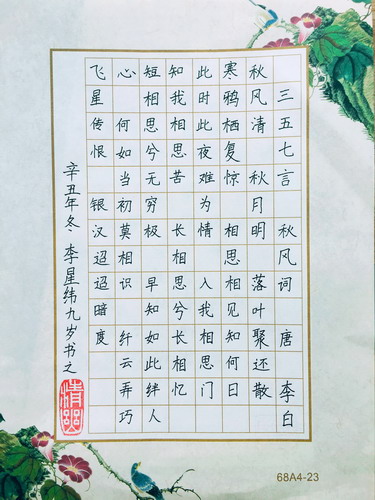 三五七言 秋风词 唐 李白
秋风清 秋月明 落叶聚还散
寒鸦栖复惊 相思相见知何日
此时此夜难为情 入我相思门
知我相思苦 长相思兮长相忆
短相思兮无穷极 早知如此绊人
心 何如当初莫相识 纤云弄巧
飞星传恨 银汉迢迢暗度
辛丑年冬 李星纬九岁书之
68A4-23